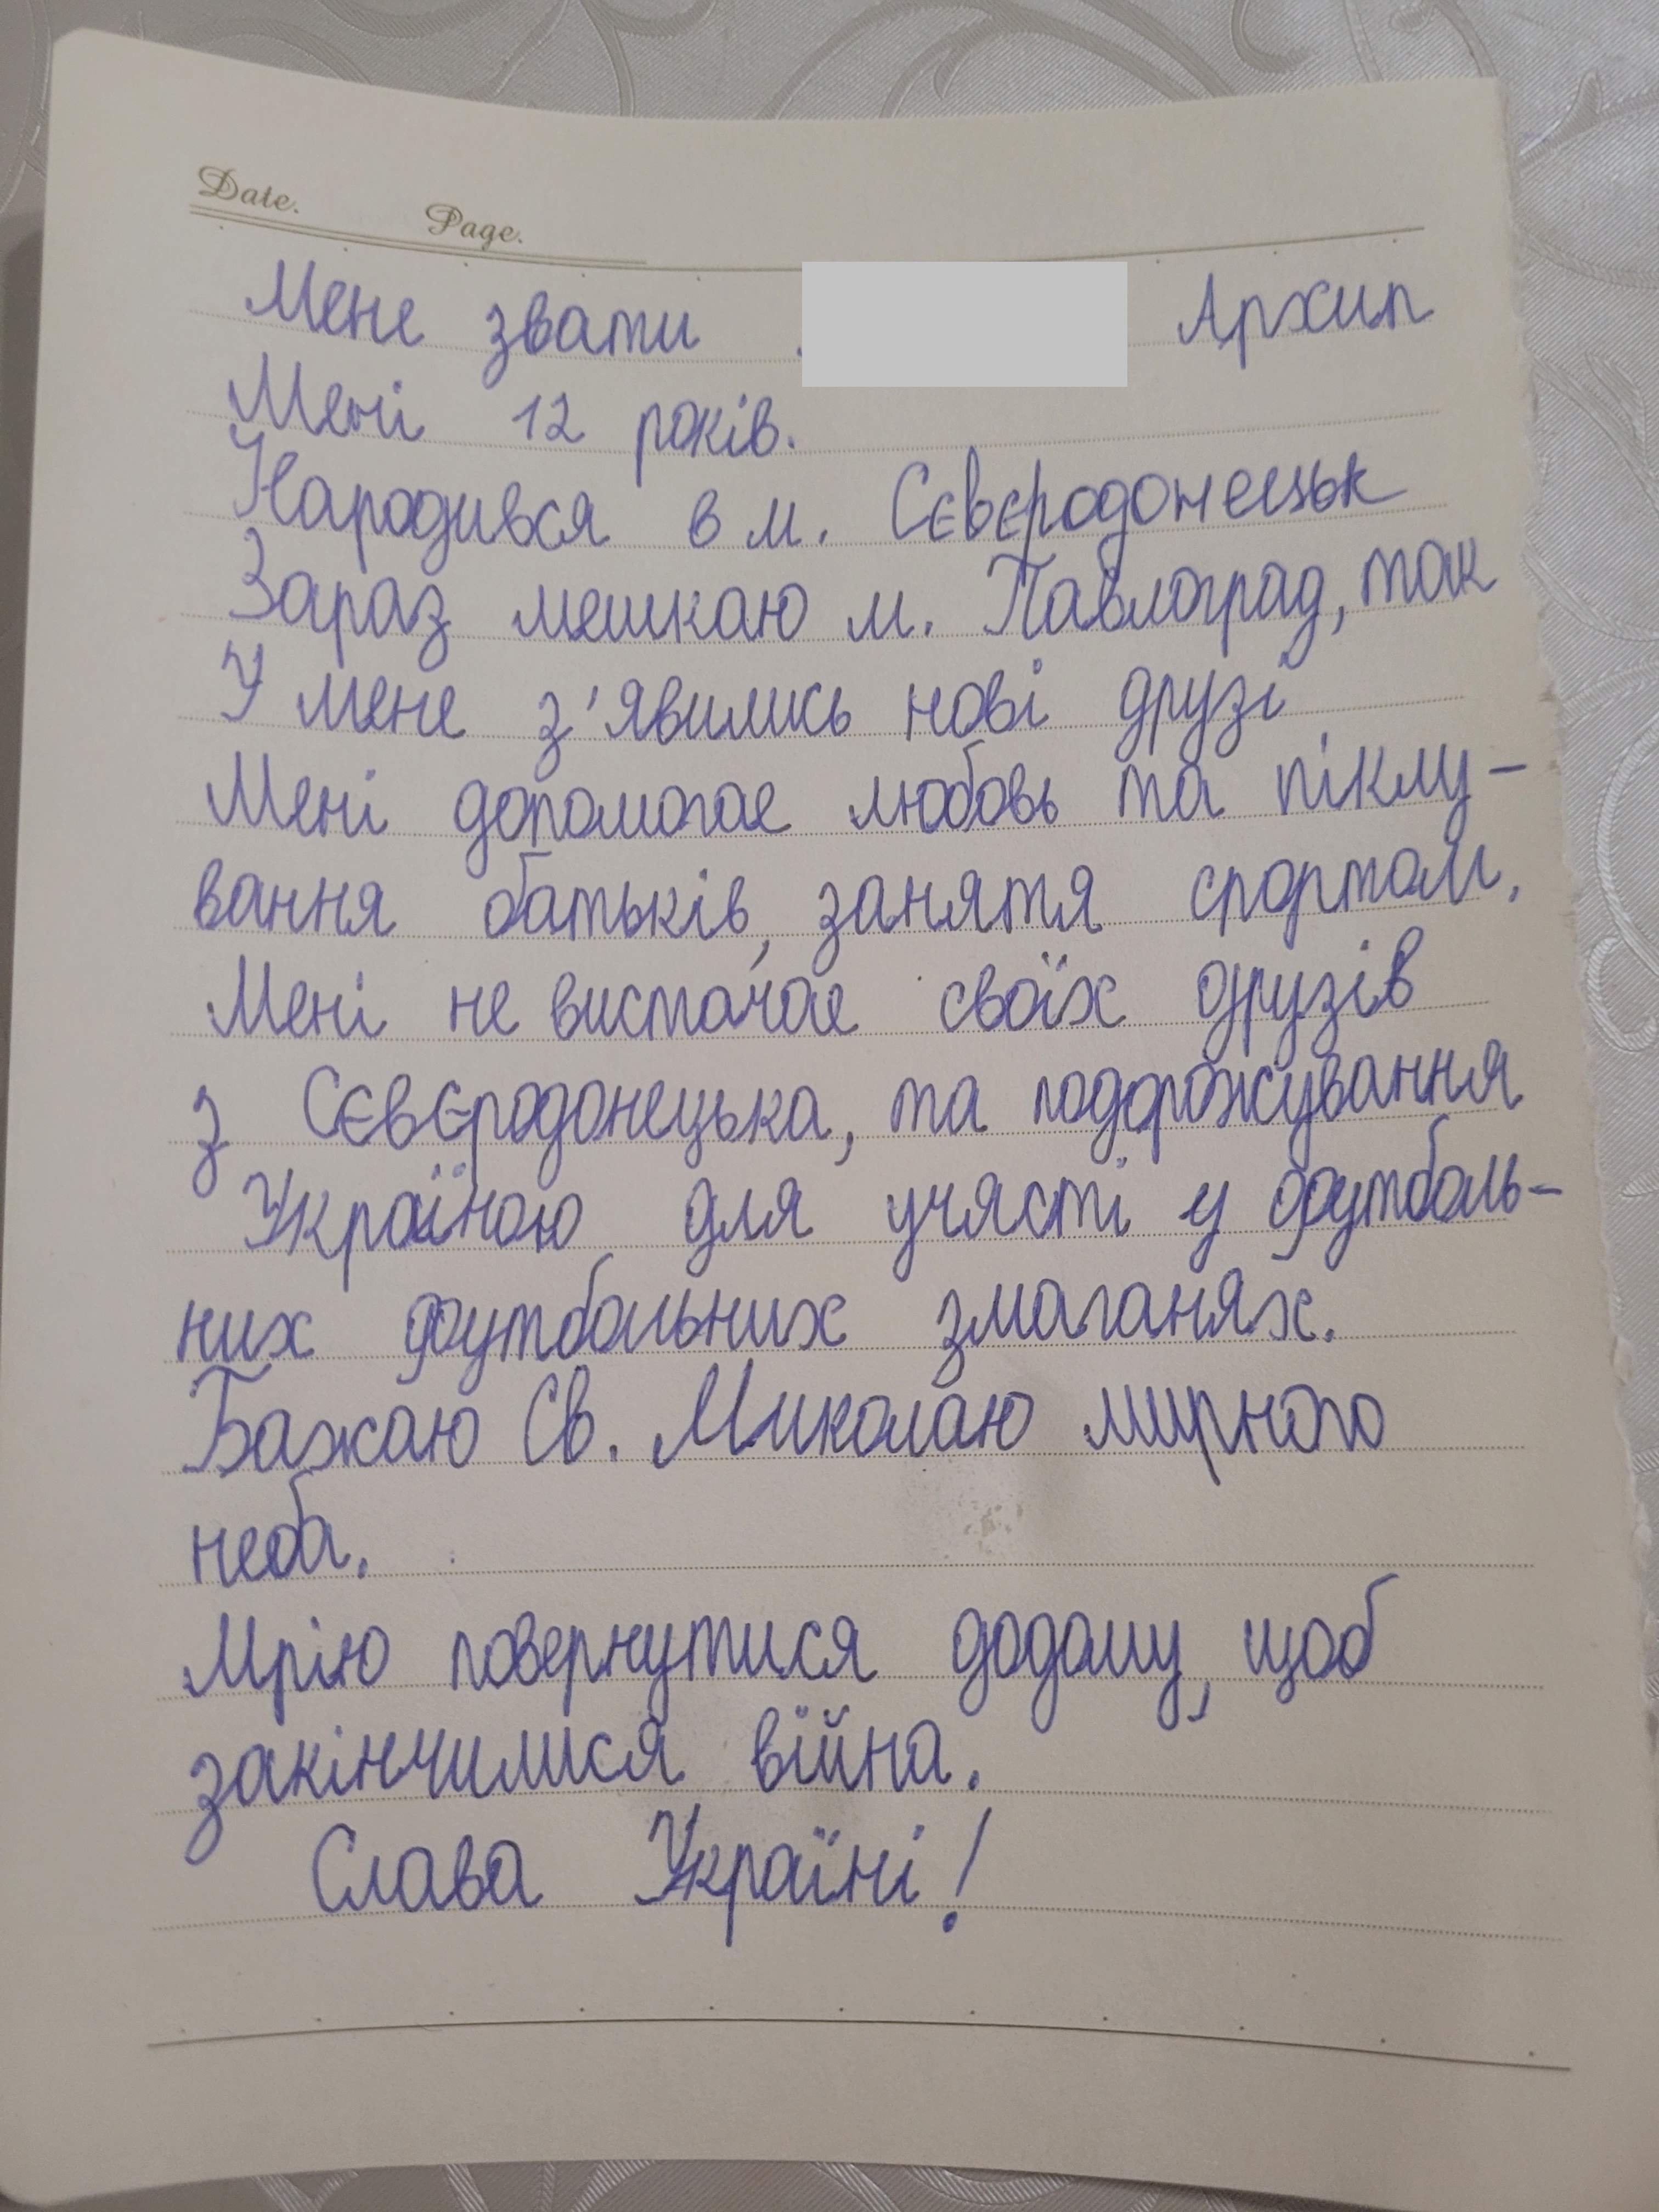 Date.
Page.
Мене звати Архип
Мені 12 років.
Народився в м. Сєвєродонецьк
Зараз мешкаю м. Павлоград, так
У мене з'явились нові друзі
Мені допомогає любовь та піклу-
вання батьків, заняття спортом.
Мені не вистачає своїх друзів
з Сєвєродонецька, та подорожування
Україною для участі у футболь-
них футбольних змаганях.
Бажаю Св. Миколаю мирного
неба.
Мрію повернутися додому, щоб
закінчилися війна.
Слава Україні!